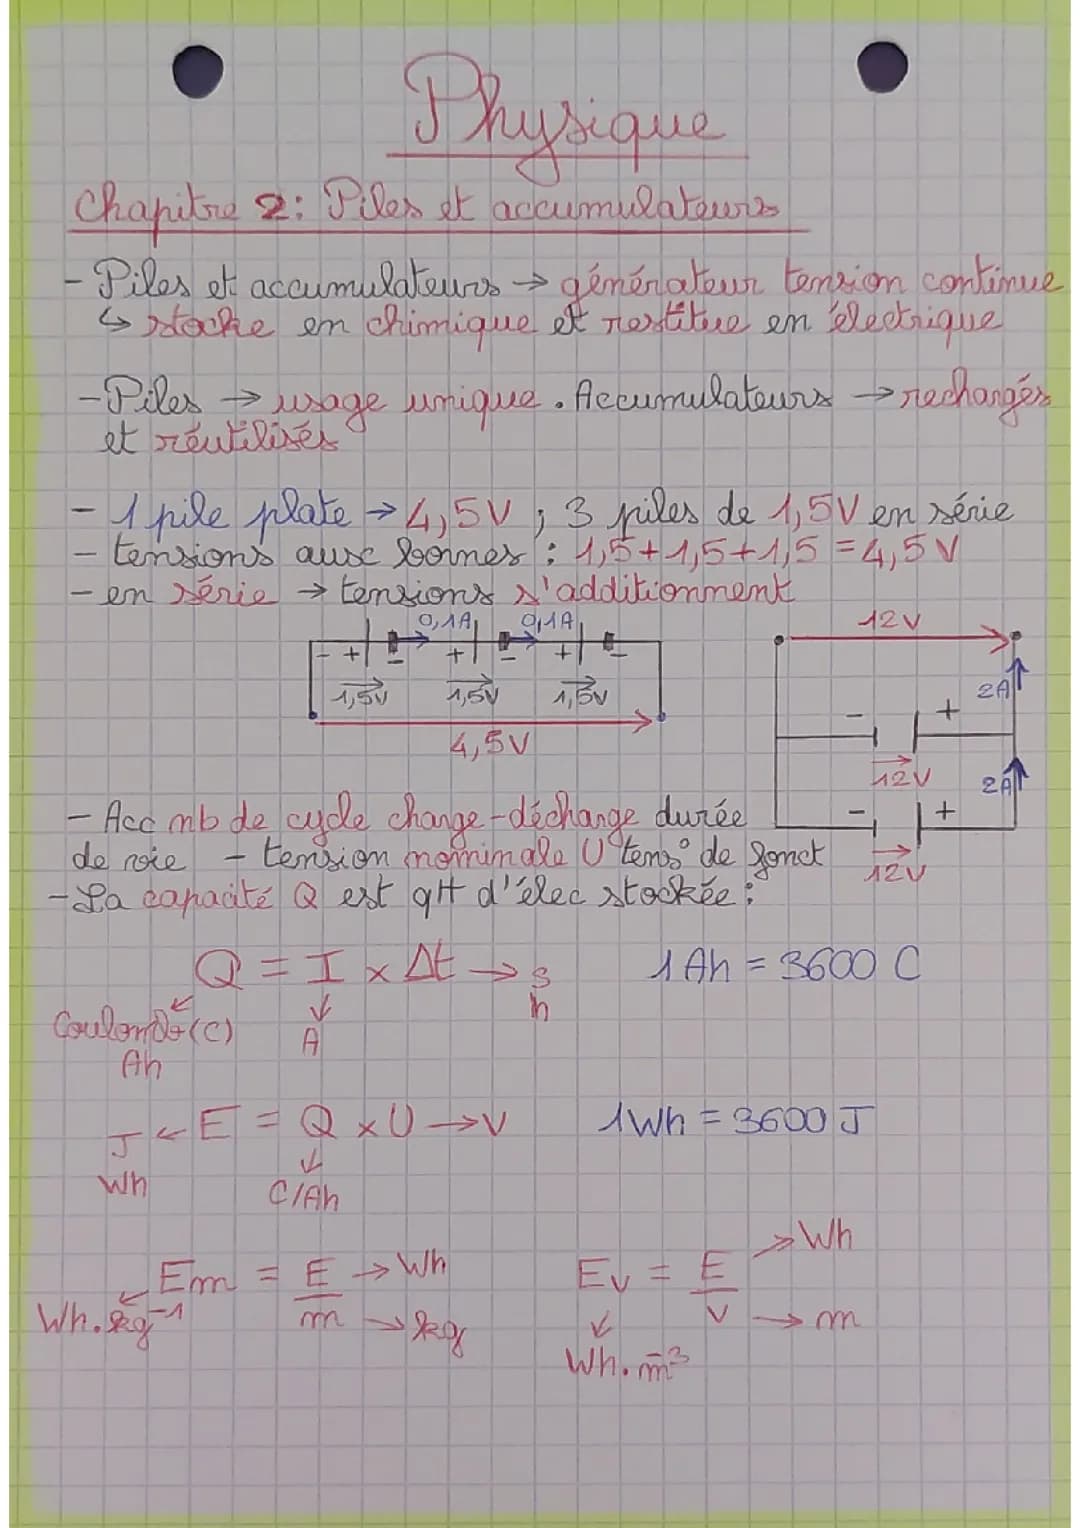 Physique
Chapitre 2: Piles et accumulateurs
- Piles et accumulateurs → générateur tension continue
↳ stocke en chimique et restitue en électrique
- Piles → usage unique. Accumulateurs → rechargés
et réutilisés
- 1 pile plate → 4,5V ; 3 piles de 1,5V en série
- tensions aux bornes : 1,5+1,5+1,5 = 4,5 V
- en série → tensions s'additionnent
0,1A 0,1A
- + - + - + -
1,5V 1,5V 1,5V
4,5V
12V
2A
- +
12V
2A
- +
12V
- Acc nb de cycle charge-décharge durée
de vie - tension nominale U tens° de fonct
- La capacité Q est qtt d'élec stockée :
Q = I × Δt → s
h
Coulombs (C)
Ah
A
1 Ah = 3600 C
J ← E = Q × U → V
Wh
C/Ah
1Wh = 3600 J
Em = E/m → Wh
→ kg
Wh.kg⁻¹
Ev = E/V → Wh
→ m
Wh.m⁻³